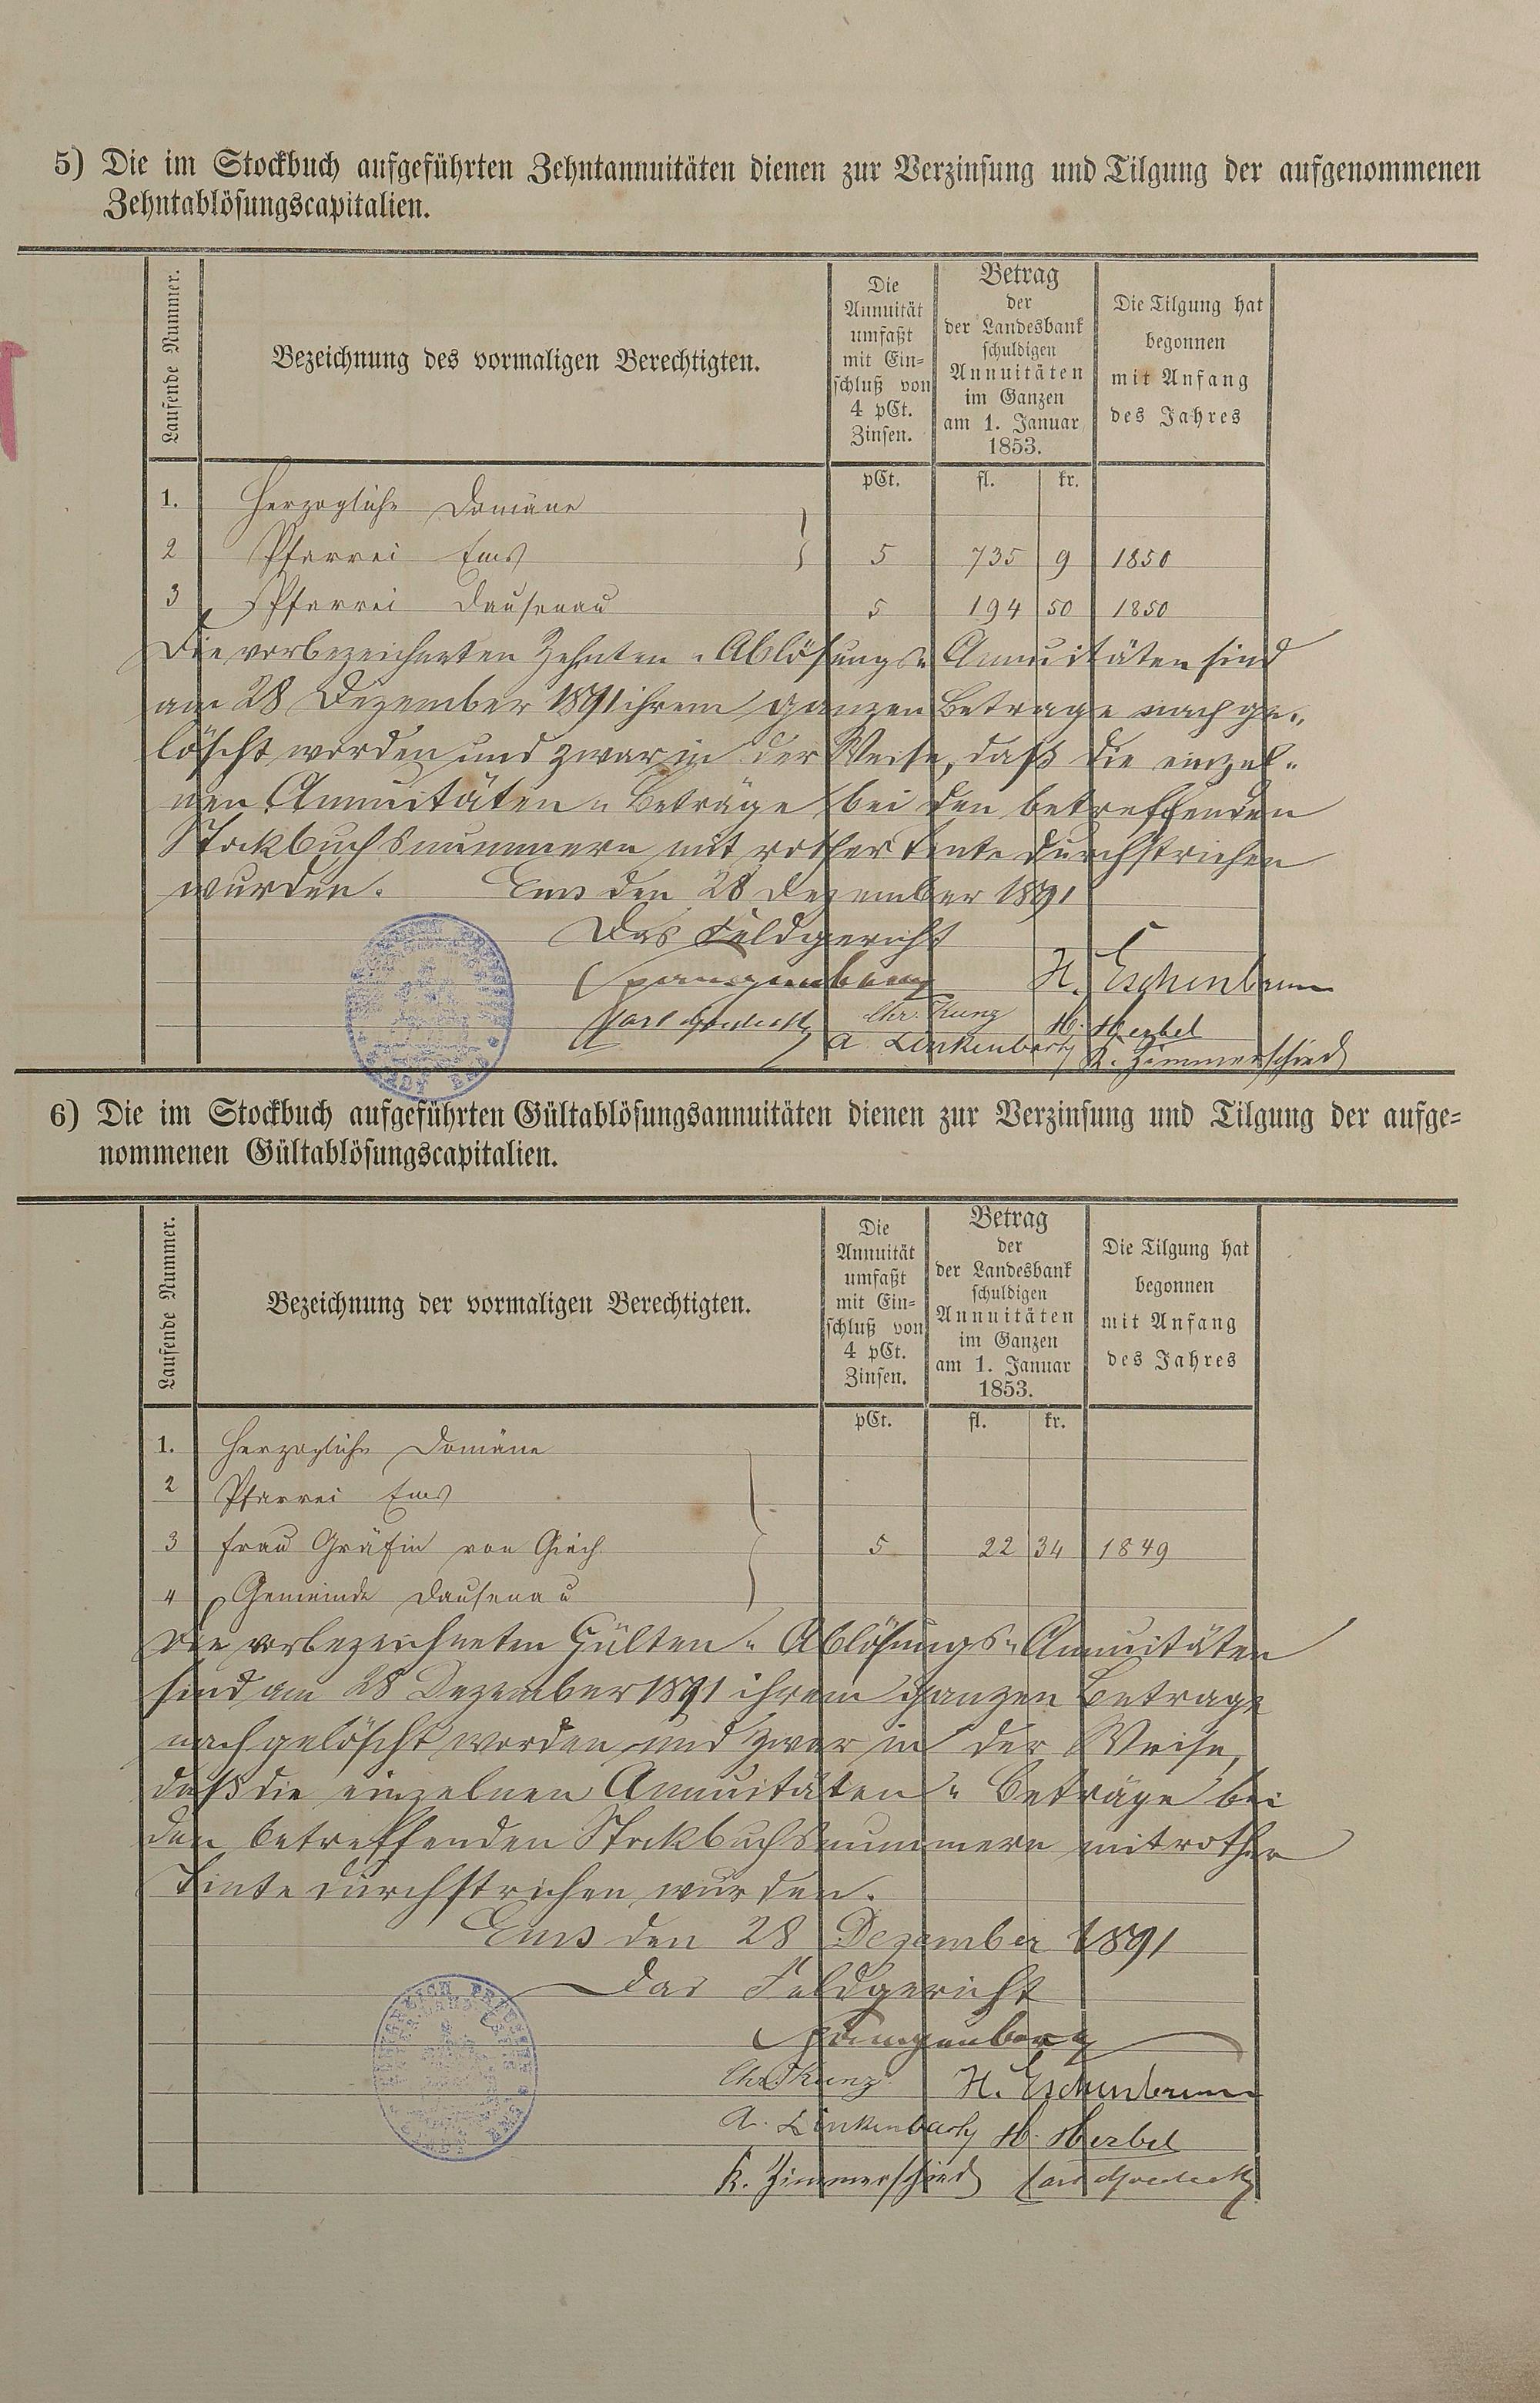 5) Die im Stockbuch aufgeführten Zehntannuitäten dienen zur Verzinsung und Tilgung der aufgenommenen
Zehntablösungscapitalien.
Laufende Nummer.
Bezeichnung des vormaligen Berechtigten.
Die
Annuität
umfaßt
mit Ein=
schluß von
4 pCt.
Zinsen.
Betrag
der
der Landesbank
schuldigen
Annuitäten
im Ganzen
am 1. Januar
1853.
Die Tilgung hat
begonnen
mit Anfang
des Jahres
pCt. fl. kr.
1. Herzogliche Domäne
2 Pfarrei Ems 5 735 9 1850
3 Pfarrei Dausenau 5 194 50 1850
Die vorbezeichneten Zehnten-Ablösungs-Annuitäten sind
am 28 Dezember 1891 ihrem ganzen Betrage nach ge-
löscht worden und zwar in der Weise, daß die einzel-
nen Annuitäten-Beträge bei den betreffenden
Stockbuchsnummern mit rother Tinte durchstrichen
wurden. Ems den 28 Dezember 1891
Das Feldgericht
Spangenberg H. Eschenbrenn
Chr. Kunz H. Herbel
A Linkenbach K. Zimmerschied
6) Die im Stockbuch aufgeführten Gültablösungsannuitäten dienen zur Verzinsung und Tilgung der aufge=
nommenen Gültablösungscapitalien.
Laufende Nummer.
Bezeichnung der vormaligen Berechtigten.
Die
Annuität
umfaßt
mit Ein=
schluß von
4 pCt.
Zinsen.
Betrag
der
der Landesbank
schuldigen
Annuitäten
im Ganzen
am 1. Januar
1853.
Die Tilgung hat
begonnen
mit Anfang
des Jahres
pCt. fl. kr.
1. Herzogliche Domäne
2 Pfarrei Ems
3 Frau Gräfin von Giech 5 22 34 1849
4 Gemeinde Dausenau
Die vorbezeichneten Gülten-Ablösungs-Annuitäten
sind am 28 Dezember 1891 ihrem ganzen Betrage
nach gelöscht worden und zwar in der Weise,
daß die einzelnen Annuitäten-Beträge bei
den betreffenden Stockbuchsnummern mit rother
Tinte durchstrichen wurden.
Ems den 28 Dezember 1891
Das Feldgericht
Spangenberg
Chr. Kunz H. Eschenbrenn
A. Linkenbach H. Herbel
K. Zimmerschied